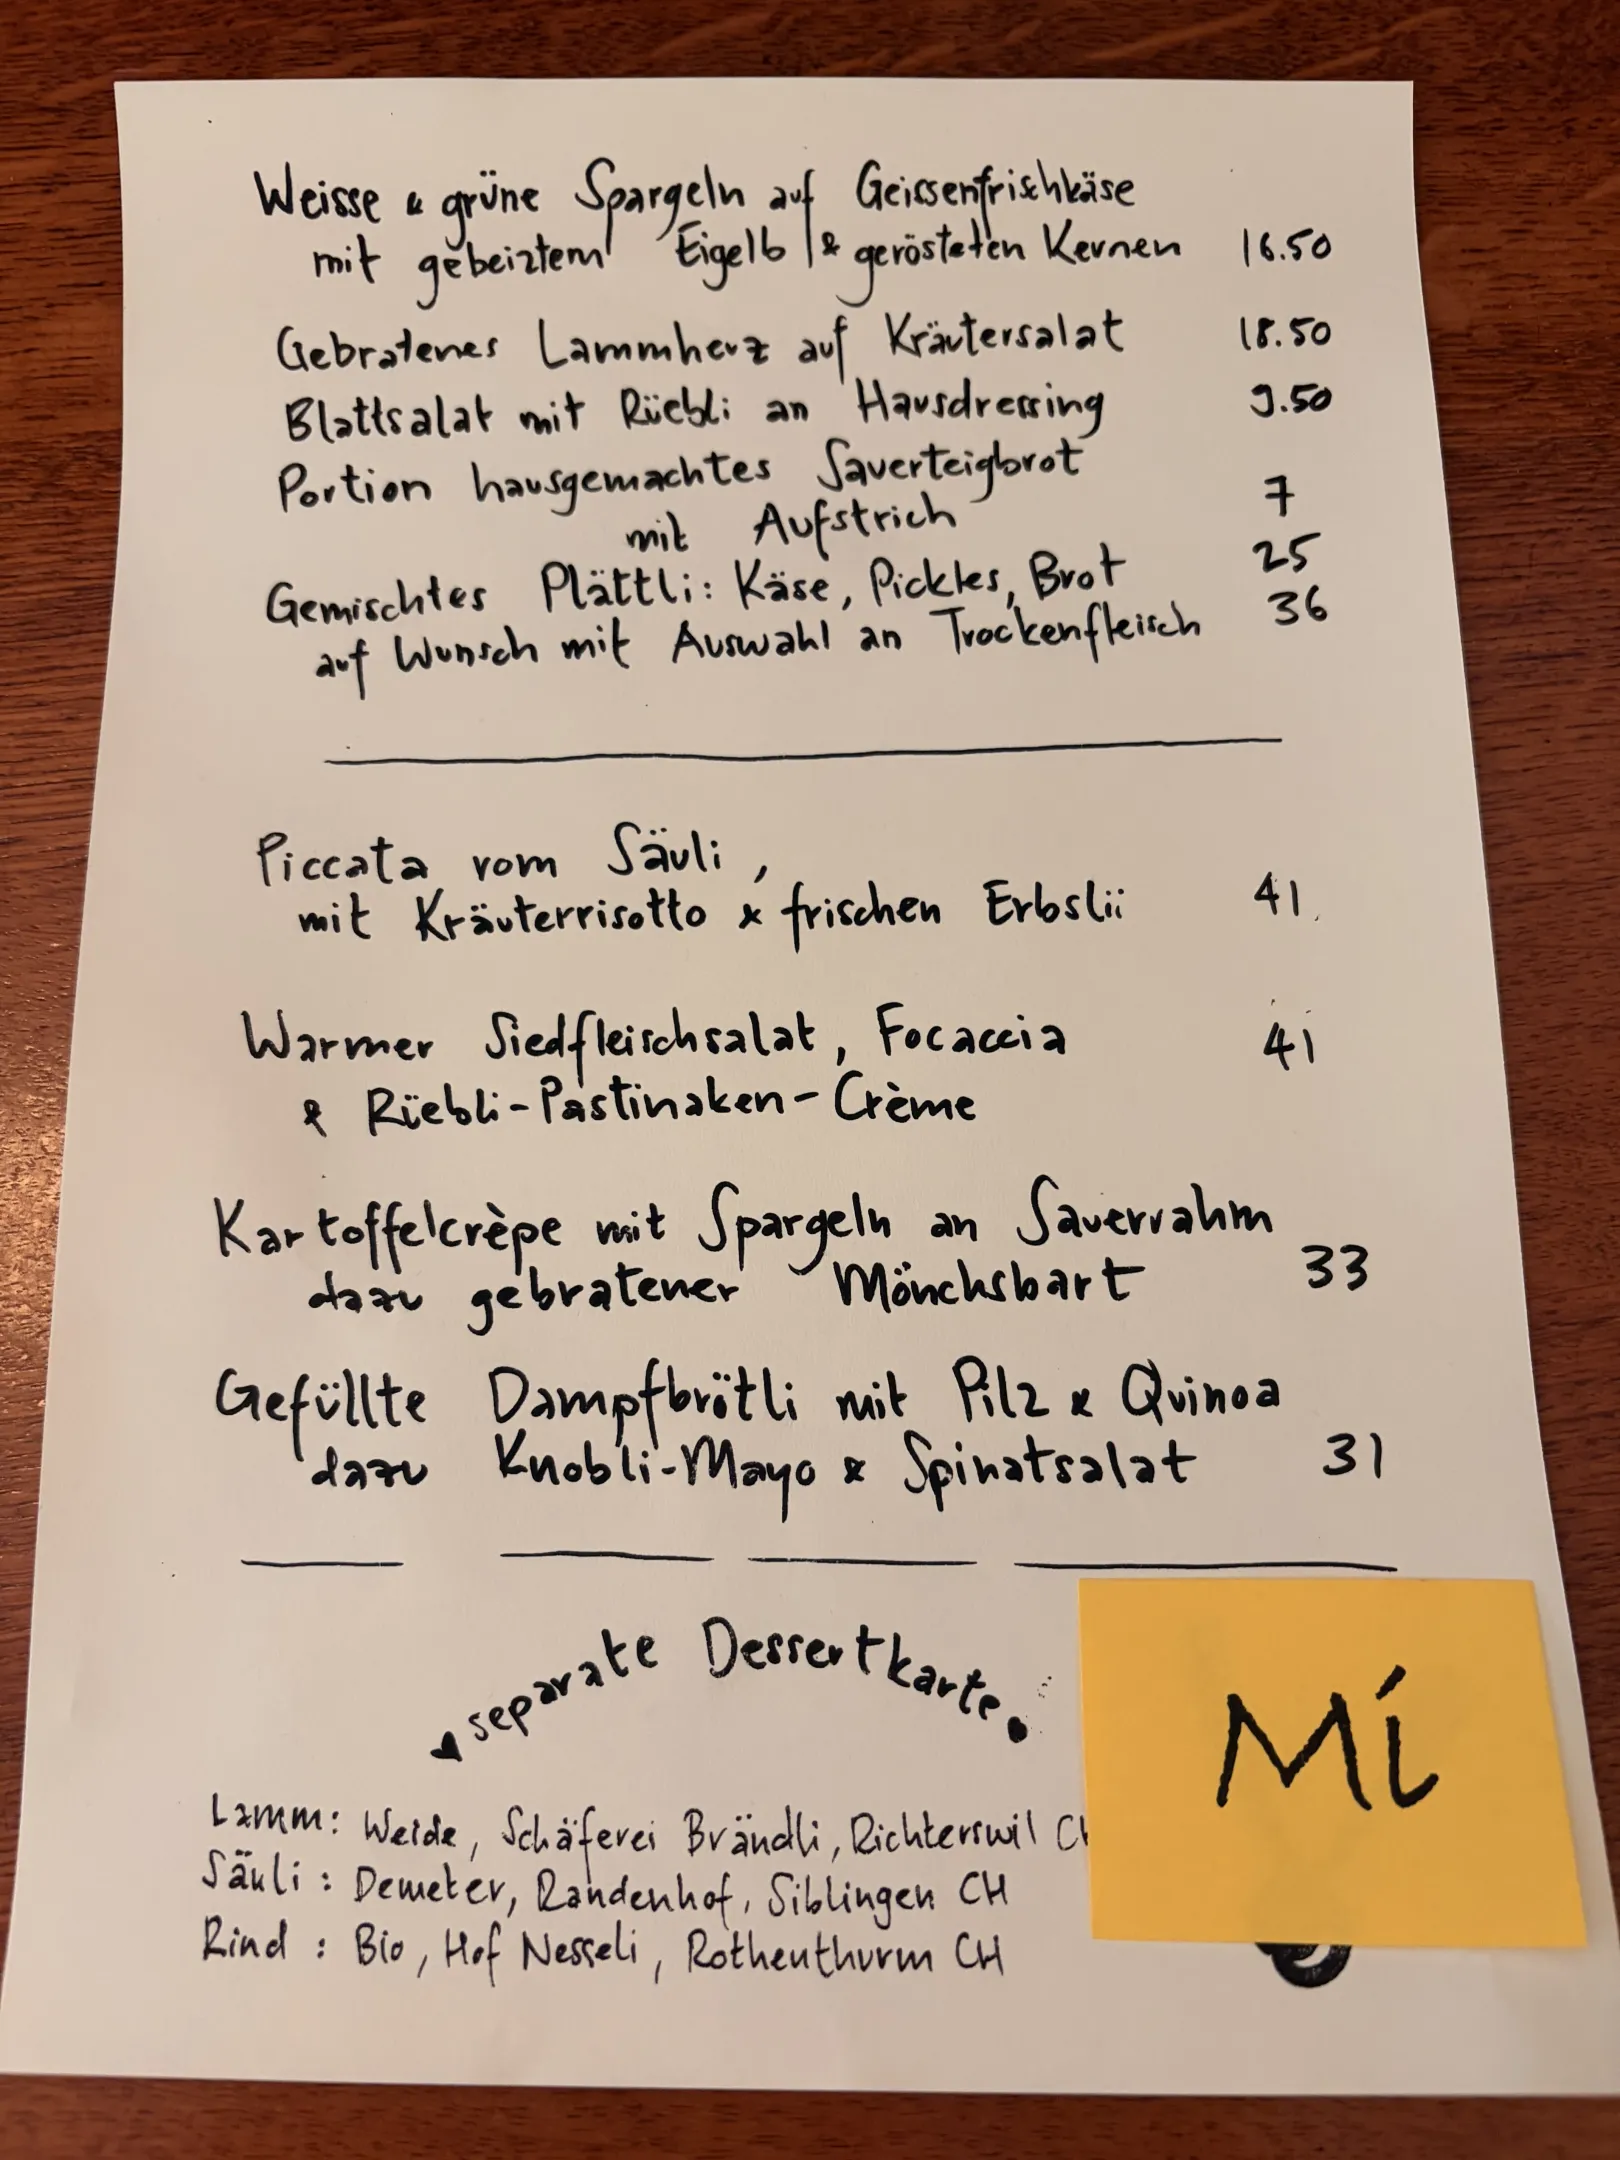 Weisse & grüne Spargeln auf Geissenfrischkäse
mit gebeiztem Eigelb & gerösteten Kernen 16.50
Gebratenes Lammherz auf Kräutersalat 18.50
Blattsalat mit Rüebli an Hausdressing 9.50
Portion hausgemachtes Sauerteigbrot
mit Aufstrich 7
Gemischtes Plättli: Käse, Pickles, Brot 25
auf Wunsch mit Auswahl an Trockenfleisch 36
Piccata vom Säuli,
mit Kräuterrisotto & frischen Erbslii 41
Warmer Siedfleischsalat, Focaccia 41
& Rüebli-Pastinaken-Crème
Kartoffelcrèpe mit Spargeln an Sauerrahm
dazu gebratener Mönchsbart 33
Gefüllte Dampfbrötli mit Pilz & Quinoa
dazu Knobli-Mayo & Spinatsalat 31
separate Dessertkarte
Mi
Lamm: Weide, Schäferei Brändli, Richterswil CH
Säuli: Demeter, Randenhof, Siblingen CH
Rind: Bio, Hof Nesseli, Rothenthurm CH